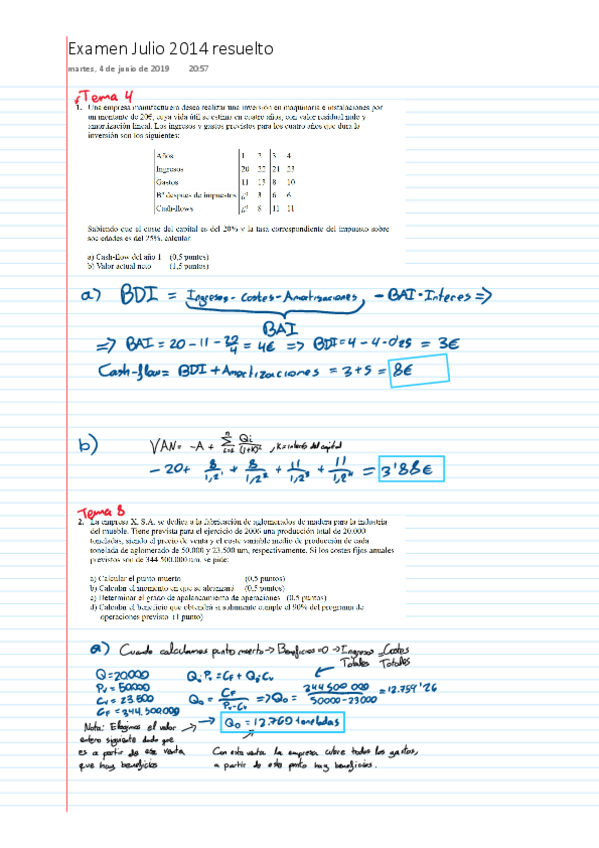 Examen Julio 2014 resuelto
martes, 4 de junio de 2019 20:57
Tema 4
1. Una empresa manufacturera desea realizar una inversión en maquinaria e instalaciones por
un montante de 20€, cuya vida útil se estima en cuatro años, con valor residual nulo y
amortización lineal. Los ingresos y gastos previstos para los cuatro años que dura la
inversión son los siguientes:
Años 1 2 3 4
Ingresos 20 22 21 23
Gastos 11 13 8 10
Bº después de impuestos ¿? 3 6 6
Cash-flows ¿? 8 11 11
Sabiendo que el coste del capital es del 20% y la tasa correspondiente del impuesto sobre
sociedades es del 25%, calcular:
a) Cash-flow del año 1 (0,5 puntos)
b) Valor actual neto (1,5 puntos)
a) BDI = Ingresos - Costes - Amortizaciones - BAI · Interes =>
BAI
=> BAI = 20 - 11 - 20/4 = 4€ => BDI = 4 - 4 · 0'25 = 3€
Cash-flow = BDI + Amortizaciones = 3 + 5 = 8€
b) VAN = -A + Σ Qi/(1+K)^i , K = interés del capital
-20 + 8/1,2^1 + 8/1,2^2 + 11/1,2^3 + 11/1,2^4 = 3'88€
Tema 8
2. La empresa X, S.A. se dedica a la fabricación de aglomerados de madera para la industria
del mueble. Tiene prevista para el ejercicio de 2006 una producción total de 20.000
toneladas, siendo el precio de venta y el coste variable medio de producción de cada
tonelada de aglomerado de 50.000 y 23.500 um, respectivamente. Si los costes fijos anuales
previstos son de 344.500.000 um, se pide:
a) Calcular el punto muerto (0,5 puntos)
b) Calcular el momento en que se alcanzará (0,5 puntos)
c) Determinar el grado de apalancamiento de operaciones (0,5 puntos)
d) Calcular el beneficio que obtendrá si solamente cumple el 90% del programa de
operaciones previsto (1 punto)
a) Cuando calculamos punto muerto -> Beneficios = 0 -> Ingresos Totales = Costes Totales
Q = 20000
Pv = 50000
Cv = 23.500
CF = 344.500.000
Q · Pv = CF + Q · Cv
Qo = CF/(Pv - Cv) => Qo = 344 500 000/(50000 - 23000) = 12.759'26
-> Qo = 12.760 toneladas
Nota: Elegimos el valor
entero siguiente dado que
es a partir de ese venta
que hay beneficios
Con esta venta la empresa cubre todos los gastos,
a partir de este punto hay beneficios.